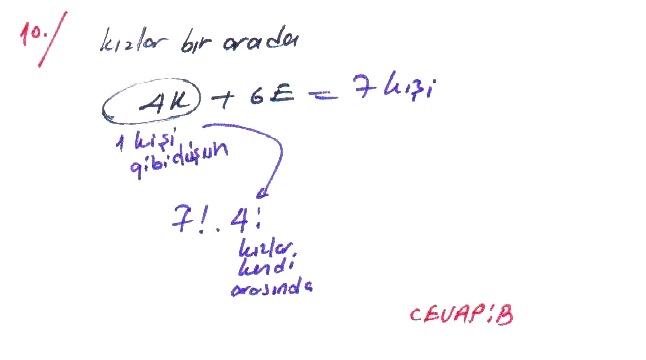 10./ kızlar bir arada
4K + 6E = 7 kişi
1 kişi
gibi düşün
7! . 4!
kızlar,
kendi
arasında
CEVAP: B